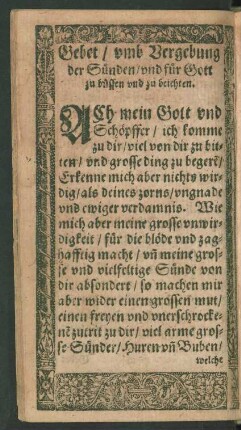 Gebet / vmb Vergebung
der Sünden / vnd für Gott
zu büssen vnd zu beichten.
ACh mein Gott vnd
Schöpffer / ich komme
zu dir / viel von dir zu bit-
ten / vnd grosse ding zu begerē /
Erkenne mich aber nichts wir-
dig / als deines zorns / vngnade
vnd ewiger verdamnis. Wie
mich aber meine grosse vnwir-
digkeit / für die blöde vnd zag-
hafftig macht / vñ meine gros-
se vnd vielfeltige Sünde von
die absondert / so machen mir
aber wider einen grossen mut /
einen freyen vnd vnerschrocke-
nē zutrit zu dir / viel arme gros-
se Sünder / Huren vñ Buben /
welche